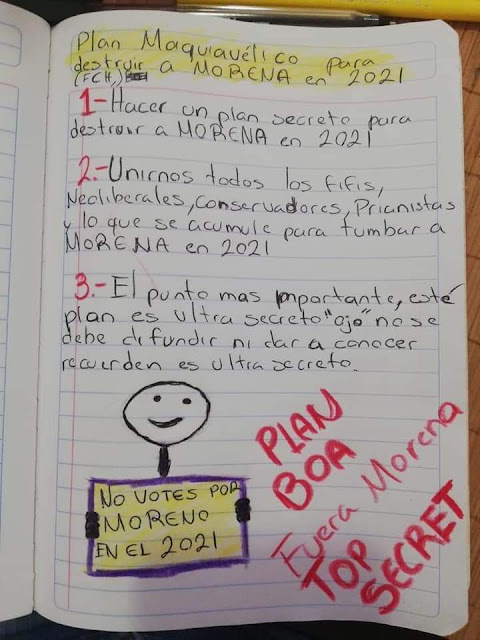 Plan Maquiavélico para
destruir a MORENA en 2021
(FCH,)
1-Hacer un plan secreto para
destruir a MORENA en 2021
2.-Unirnos todos los fifis,
Neoliberales, conservadores, Prianistas
y lo que se acumule para tumbar a
MORENA en 2021
3.-El punto mas mportante, esté
plan es ultra secreto "ojo" no se
debe difundir ni dar a conocer
recuerden es ultra secreto.
NO VOTES POR
MORENO
EN EL 2021
PLAN
BOA
Fuera Morena
TOP
SECRET